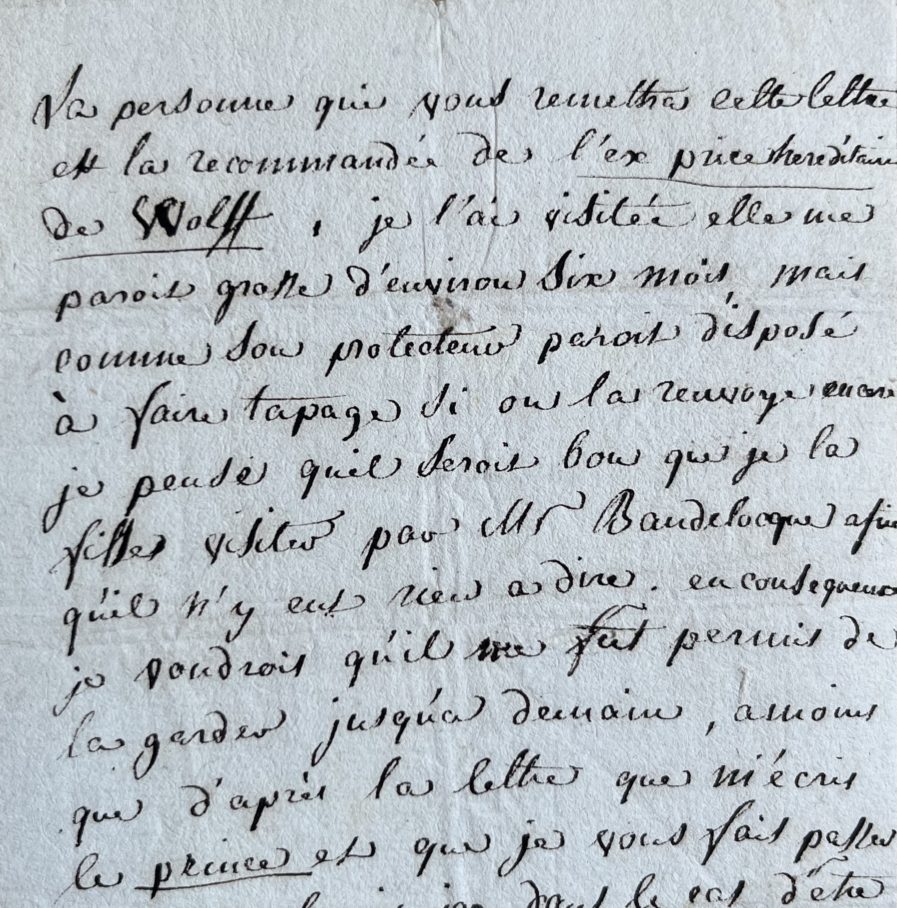 La personne qui vous remettra cette lettre
est la recommandée de l'ex price hereditaire
de Wolff, je l'ai visitée elle me
paroit grosse d'environ six mois, mais
comme son protecteur paroit disposé
à faire tapage si on la renvoye encore
je pense quil seroit bon que je la
fisse visiter par Mr Baudelocque afin
qu'il n'y eut rien a dire. en consequence
je voudrois qu'il me fut permis de
la garder jusqu'a demain, amoins
que d'après la lettre que m'écris
le prince et que je vous fait passer
dans le cas d'être